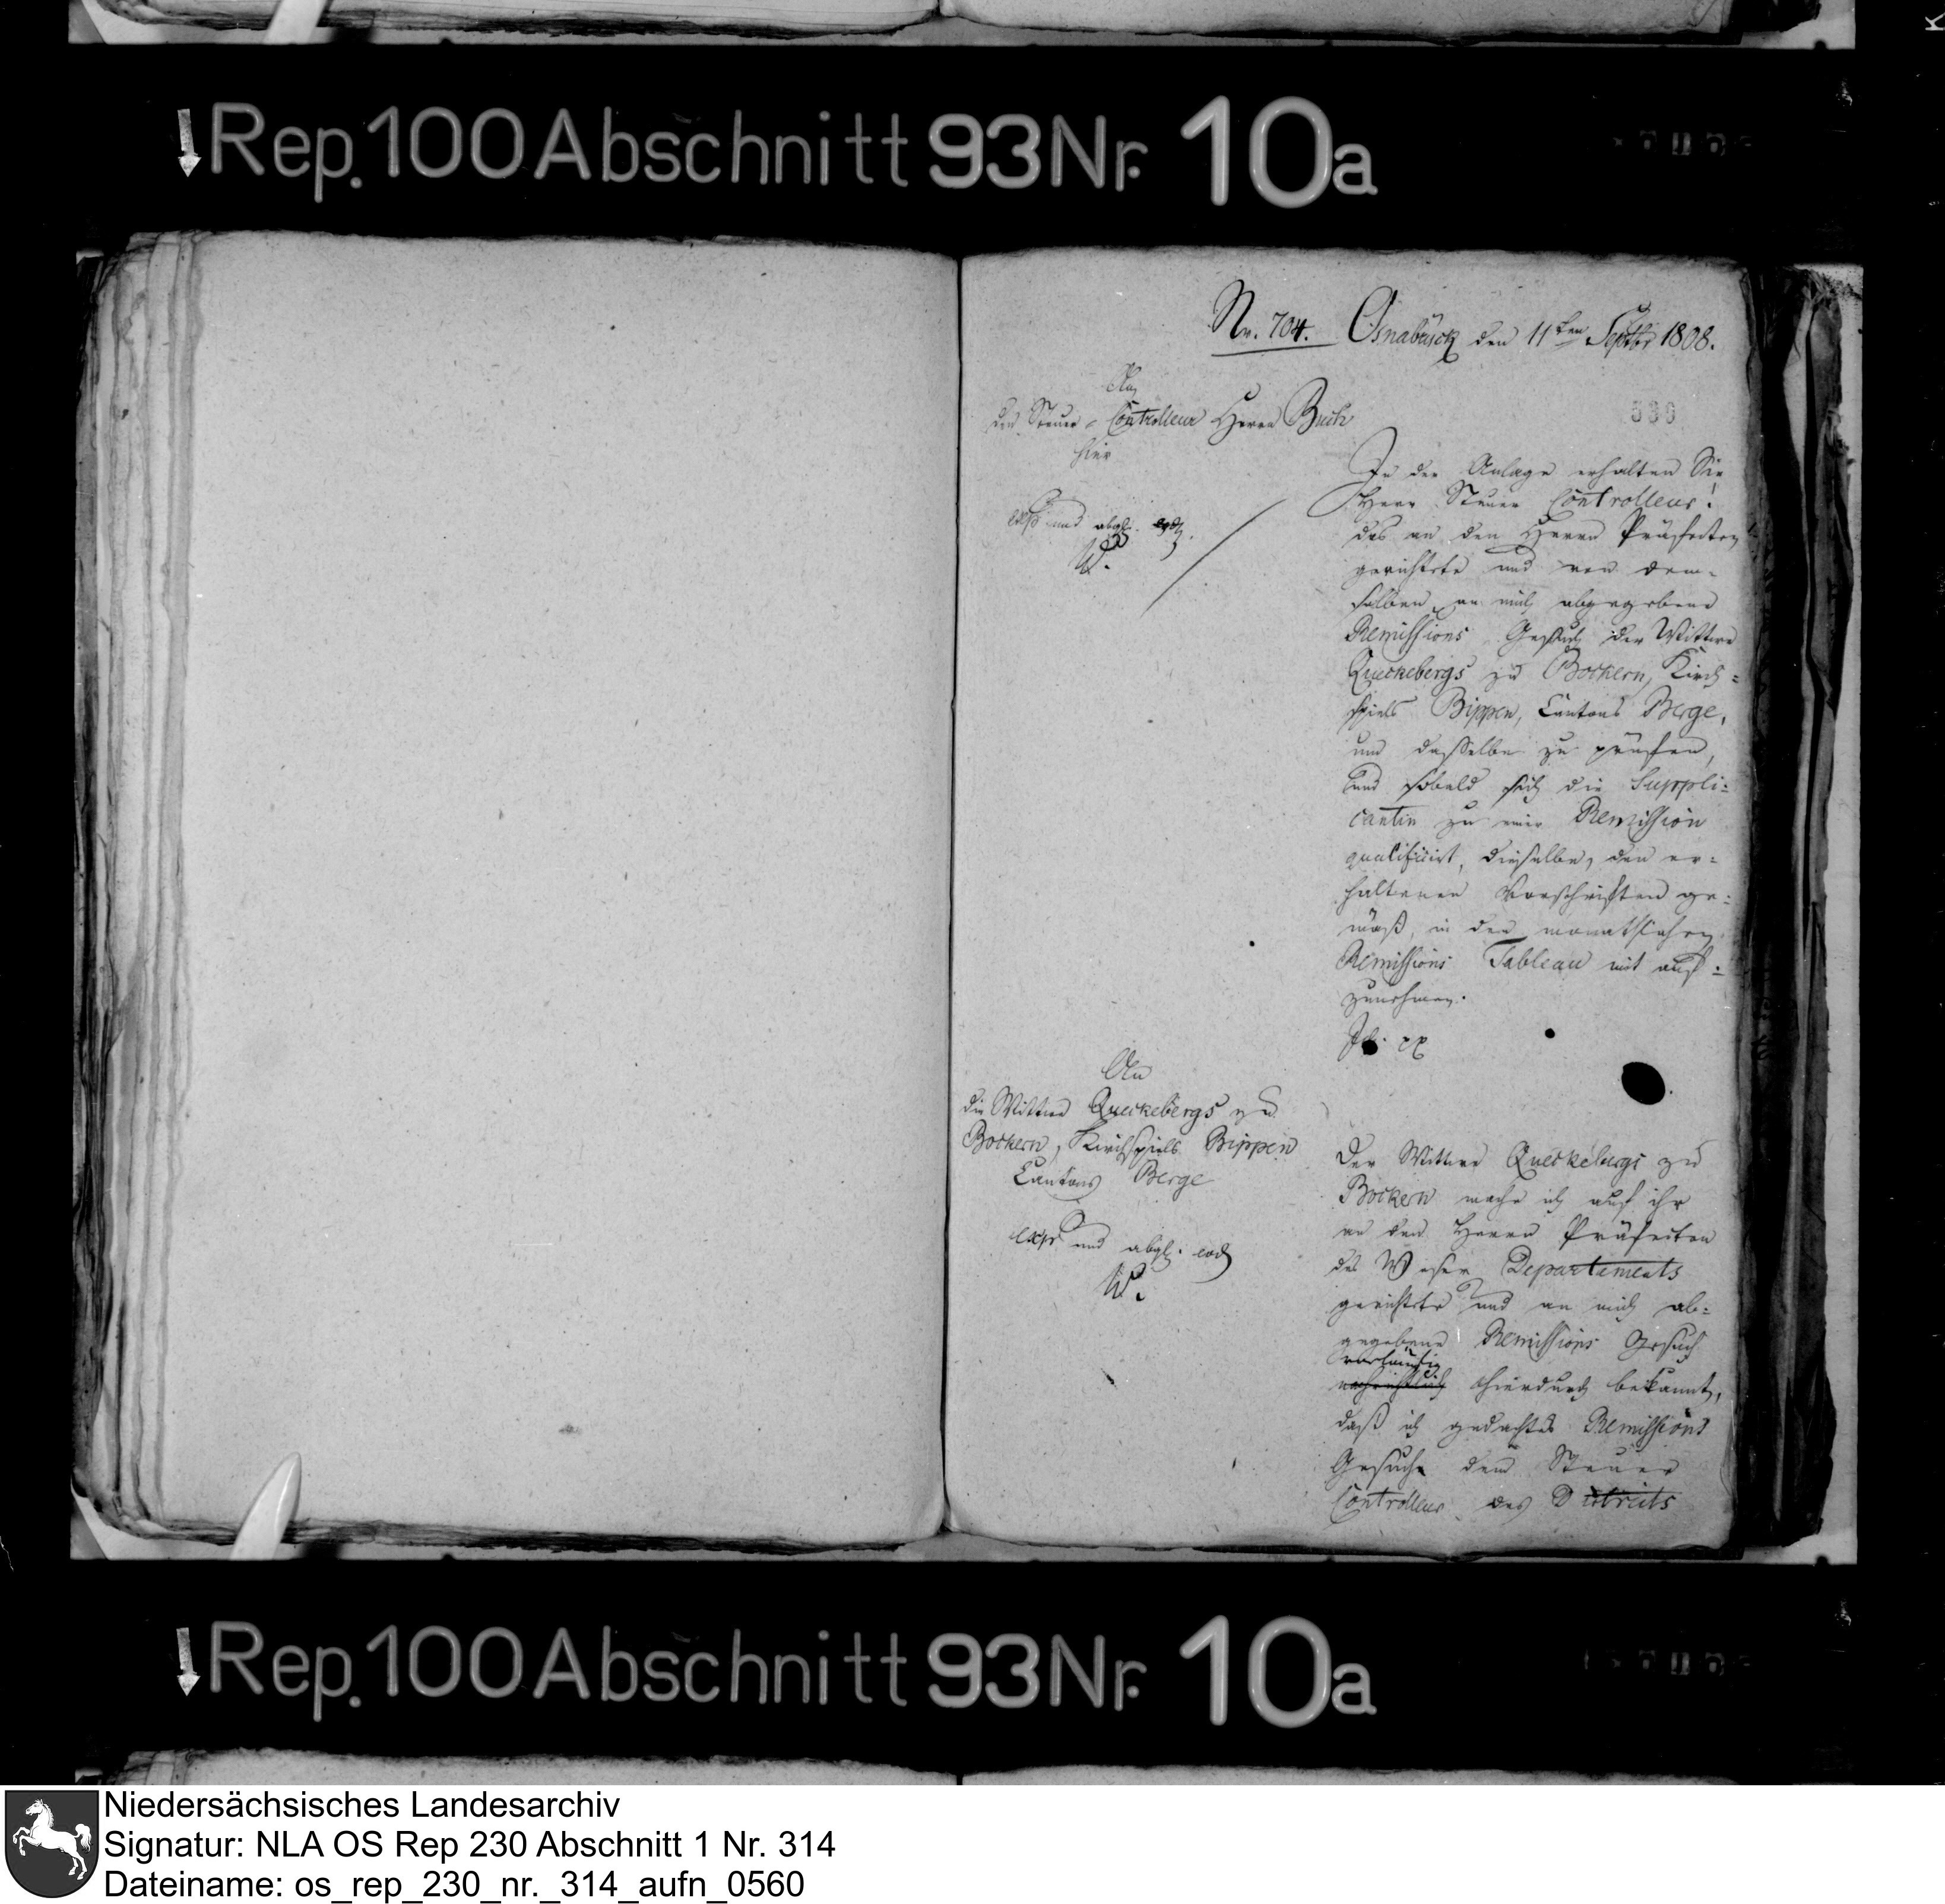 Rep. 100 Abschnitt 93 Nr. 10a
Nr. 704. Osnabrück den 11ten Septbr 1808.
An
den Steuer-Controlleur Herrn Buch
hier
exp und abgl. eod.
W.
In der Anlage erhalten Sie
Herr Steuer Controlleur!
das an den Herrn Präfecten
gerichtete und von dem-
selben an mich abgegebene
Remissions Gesuch der Wittwe
Queckebergs zu Bockern, Kirch-
spiels Bippen, Cantons Berge,
um dasselbe zu prüfen,
und sobald sich die Suppli-
cantin zu einer Remission
qualificirt, dieselbe, den er-
haltenen Vorschriften ge-
mäß, in den monatlichen
Remissions Tableau mit auf-
zunehmen.
An
die Wittwe Queckebergs zu
Bockern, Kirchspiels Bippen
Cantons Berge
exp und abgl. eod
W.
Der Wittwe Queckebergs zu
Bockern mache ich auf ihr
an den Herrn Präfecten
des Weser Departements
gerichtete und an mich ab-
gegebene Remissions Gesuch
vorläufig
nachrichtlich hierdurch bekannt,
daß ich gedachtes Remissions
Gesuche dem Steuer
Controlleur des Districts
Rep. 100 Abschnitt 93 Nr. 10a
Niedersächsisches Landesarchiv
Signatur: NLA OS Rep 230 Abschnitt 1 Nr. 314
Dateiname: os_rep_230_nr._314_aufn_0560